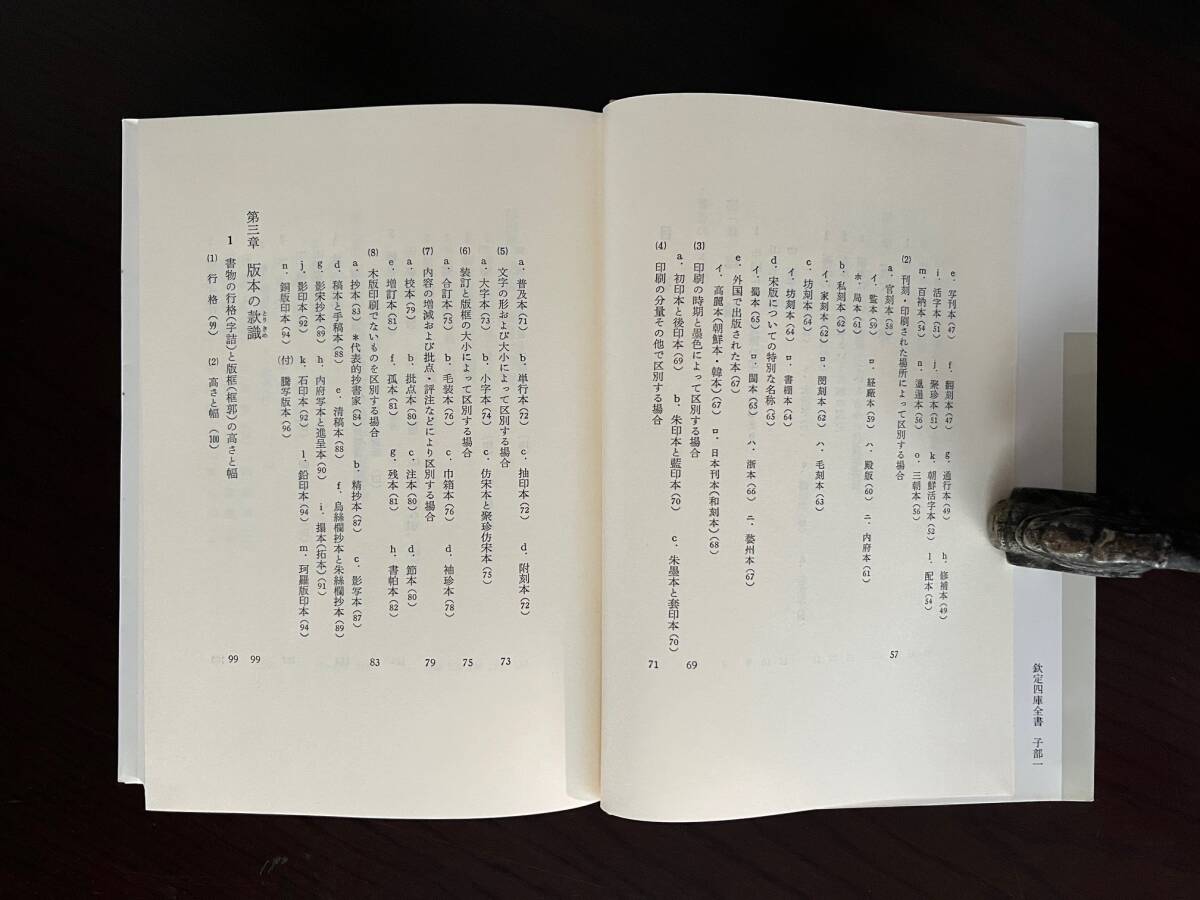 欽定四庫全書　子部一
e．写刊本(47)　f．翻刻本(47)　g．通行本(49)　h．修補本(49)
i．活字本(51)　j．聚珍本(51)　k．朝鮮活字本(52)　l．配本(54)
m．百衲本(54)　n．邋遢本(56)　o．三朝本(56)
(2)　刊刻・印刷された場所によって区別する場合　57
a．官刻本(58)
イ．監本(59)　ロ．経廠本(59)　ハ．殿版(60)　ニ．内府本(61)
ホ．局本(61)
b．私刻本(62)
イ．家刻本(62)　ロ．閔刻本(62)　ハ．毛刻本(63)
c．坊刻本(64)
イ．坊刻本(64)　ロ．書棚本(64)
d．宋版についての特別な名称(65)
イ．蜀本(65)　ロ．閩本(65)　ハ．浙本(66)　ニ．婺州本(67)
e．外国で出版された本(67)
イ．高麗本(朝鮮本・韓本)(67)　ロ．日本刊本(和刻本)(68)
(3)　印刷の時期と墨色によって区別する場合　69
a．初印本と後印本(69)　b．朱印本と藍印本(70)　c．朱墨本と套印本(70)
(4)　印刷の分量その他で区別する場合　71
a．普及本(71)　b．単行本(72)　c．抽印本(72)　d．附刻本(72)
(5)　文字の形および大小によって区別する場合　73
a．大字本(73)　b．小字本(74)　c．仿宋本と聚珍仿宋本(75)
(6)　装訂と版框の大小によって区別する場合　75
a．合訂本(75)　b．毛装本(76)　c．巾箱本(76)　d．袖珍本(78)
(7)　内容の増減および批点・評注などにより区別する場合　79
a．校本(79)　b．批点本(80)　c．注本(80)　d．節本(80)
e．増訂本(81)　f．孤本(81)　g．残本(81)　h．書帕本(82)
(8)　木版印刷でないものを区別する場合　83
a．抄本(83)　＊代表的抄書家(84)　b．精抄本(87)　c．影写本(87)
d．稿本と手稿本(88)　e．清稿本(88)　f．烏絲欄抄本と朱絲欄抄本(89)
g．影宋抄本(89)　h．内府写本と進呈本(90)　i．搨本(拓本)(91)
j．影印本(92)　k．石印本(92)　l．鉛印本(94)　m．珂羅版印本(94)
n．銅版印本(94)　(付)　謄写版本(96)
第三章　版本の款識　99
とりきめ
1　書物の行格(字詰)と版框(框郭)の高さと幅　99
(1)　行格(99)　(2)　高さと幅(100)